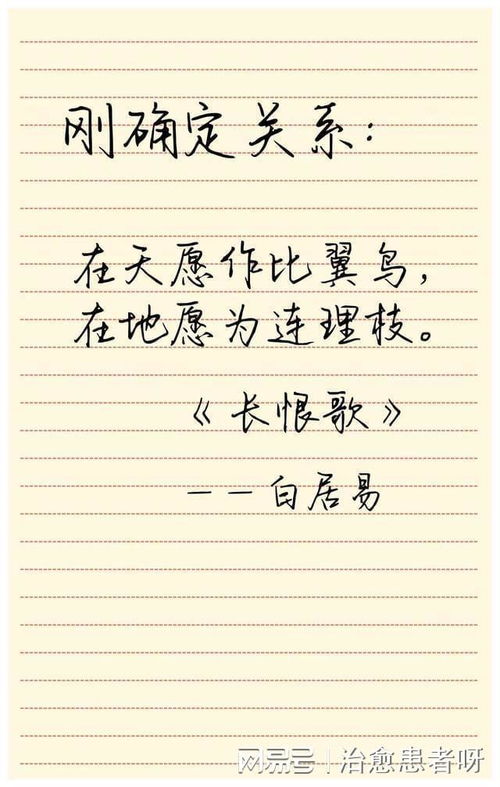 刚确定关系:
在天愿作比翼鸟,
在地愿为连理枝。
《长恨歌》
——白居易
网易号 | 治愈患者呀